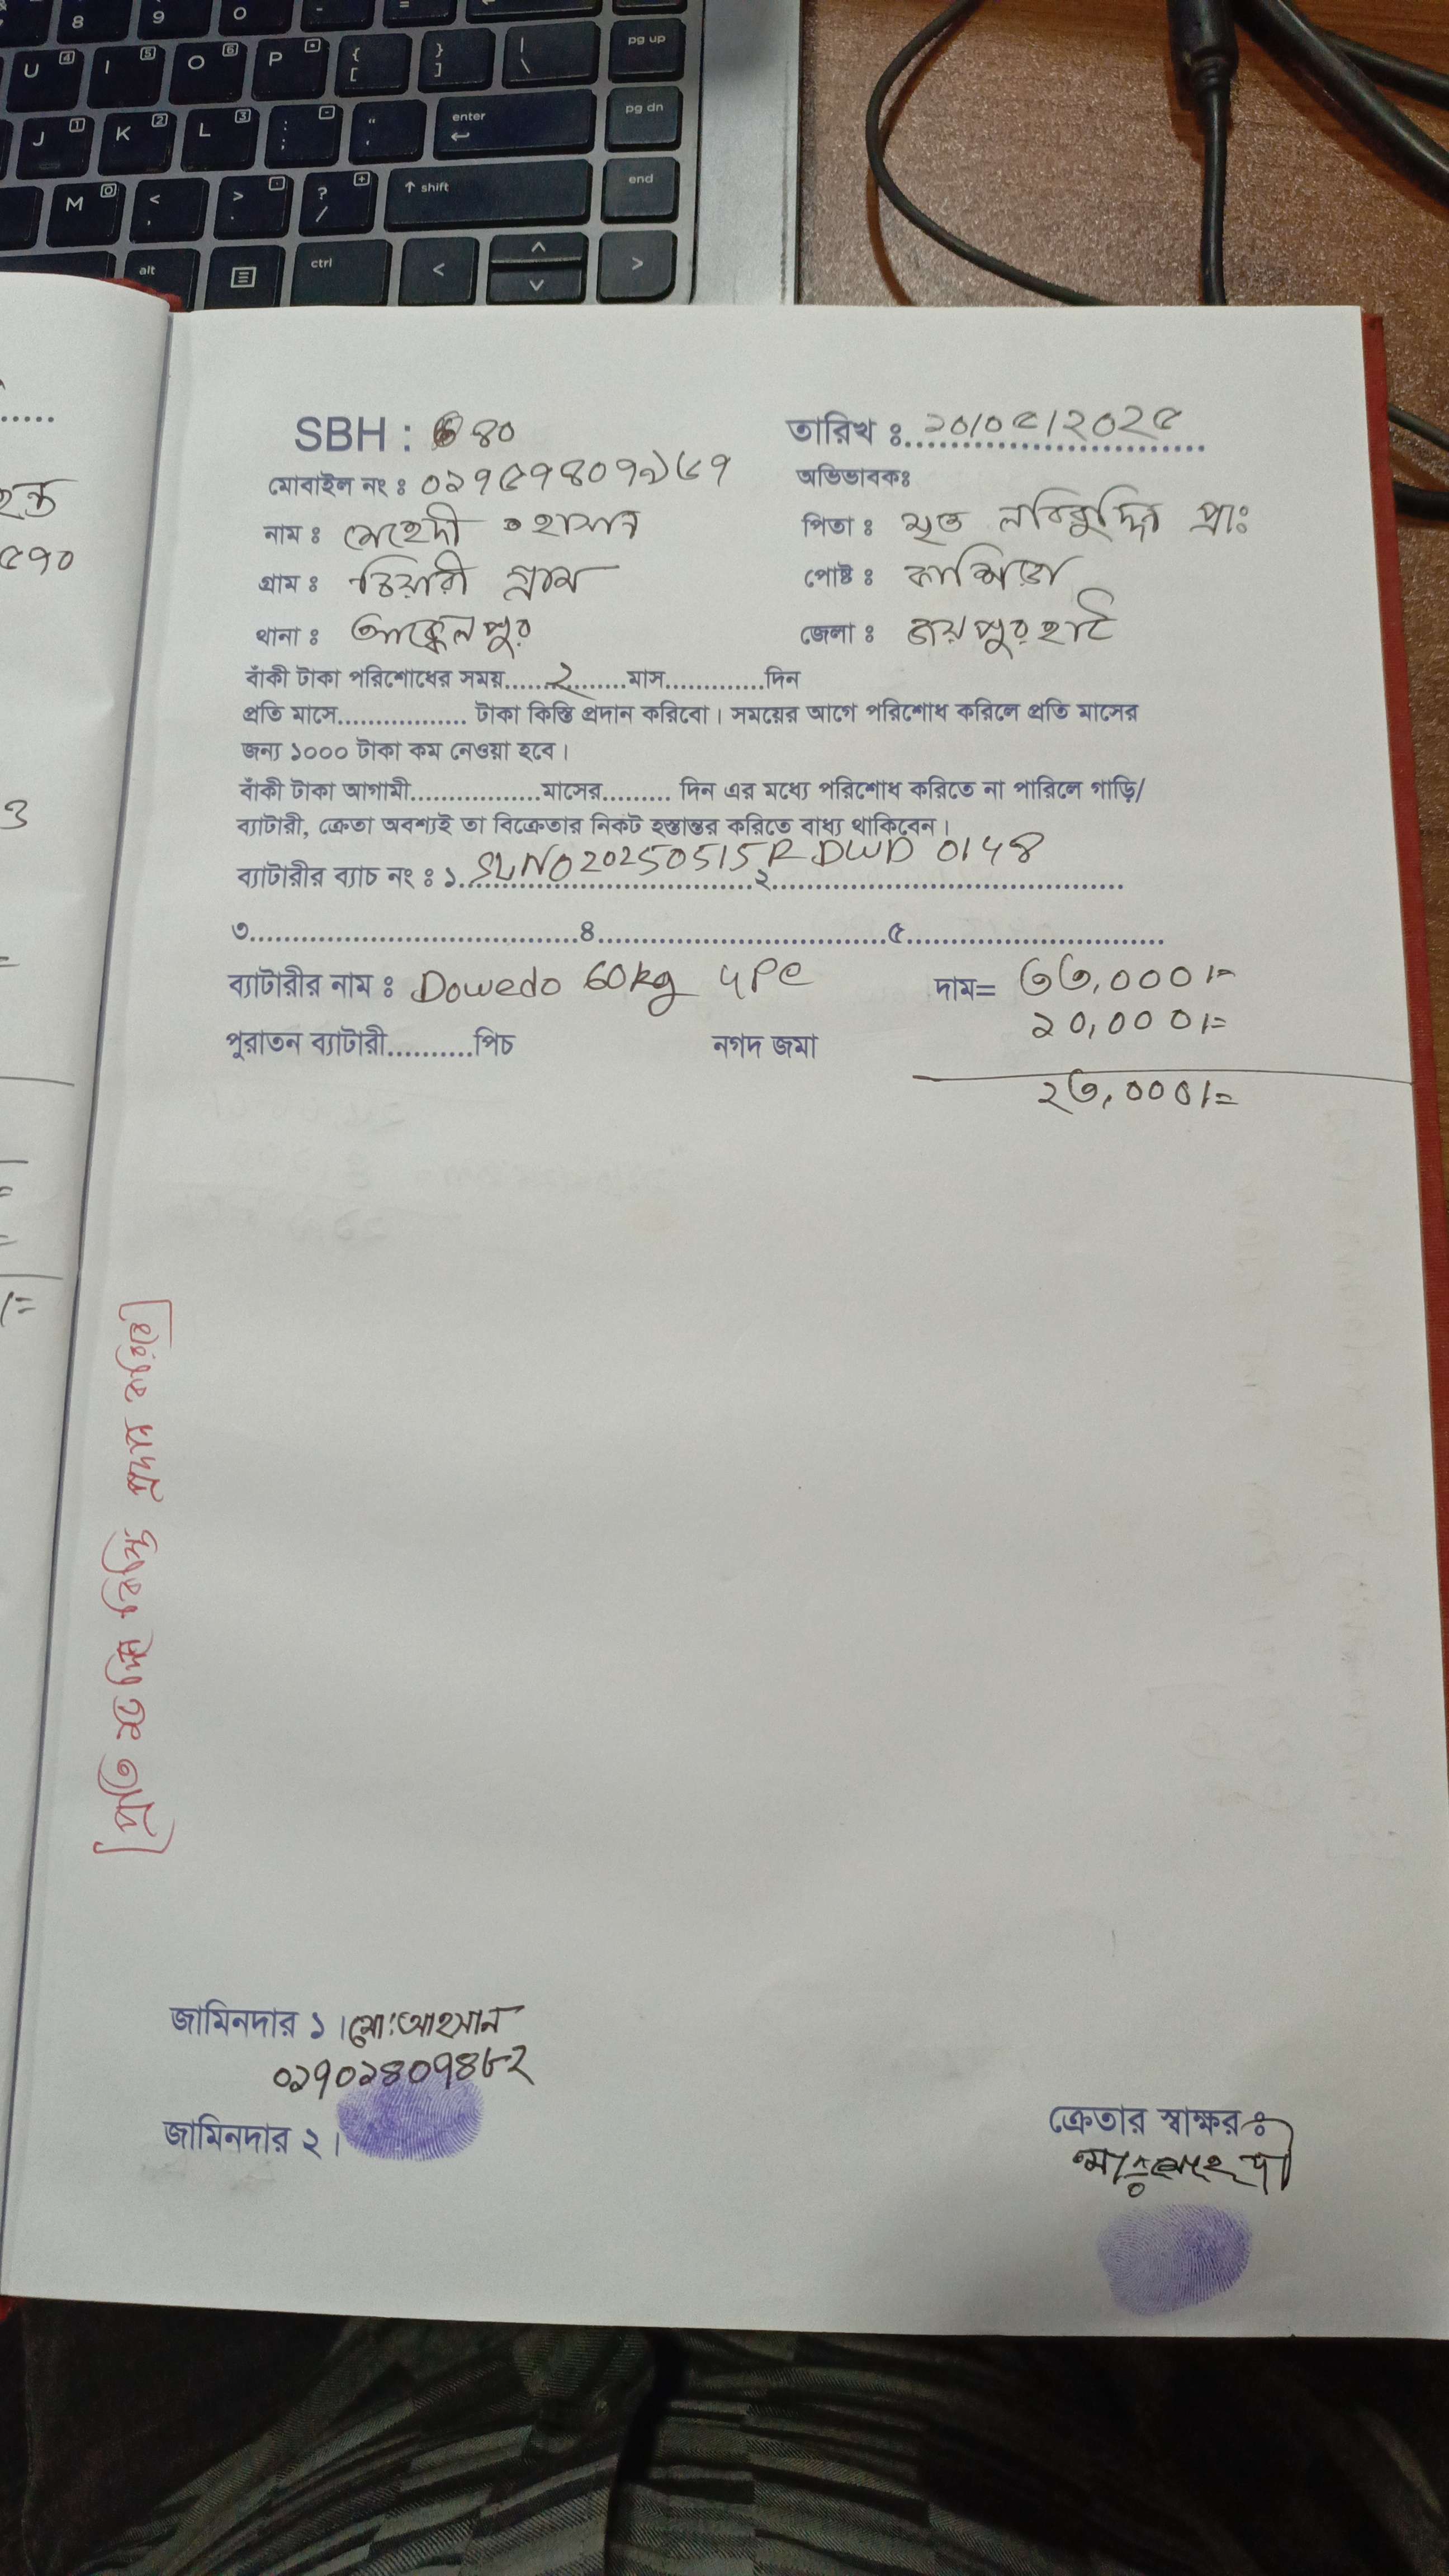 SBH : 80
তারিখ ঃ ১০/০৫/২০২৫
মোবাইল নং ঃ ০১৭৫৭৪০৭১৬৭
অভিভাবকঃ
নাম ঃ মেহেদী হাসান
পিতা ঃ মৃত নবিবুদ্দিন প্রাঃ
গ্রাম ঃ তিয়ারী গ্রাম
পোষ্ট ঃ
থানা ঃ আক্কেলপুর
জেলা ঃ জয়পুরহাট
বাঁকী টাকা পরিশোধের সময়.......২........মাস..............দিন
প্রতি মাসে................. টাকা কিস্তি প্রদান করিবো। সময়ের আগে পরিশোধ করিলে প্রতি মাসের
জন্য ১০০০ টাকা কম নেওয়া হবে।
বাঁকী টাকা আগামী..................মাসের......... দিন এর মধ্যে পরিশোধ করিতে না পারিলে গাড়ি/
ব্যাটারী, ক্রেতা অবশ্যই তা বিক্রেতার নিকট হস্তান্তর করিতে বাধ্য থাকিবেন।
ব্যাটারীর ব্যাচ নং ঃ ১. SL NO 20250515R DWD 0148 ২
৩......................................৪..................................৫..............................
ব্যাটারীর নাম ঃ Dowedo 60kg 4Pc দাম= ৩৩,০০০/=
পুরাতন ব্যাটারী..........পিচ নগদ জমা ১০,০০০/=
২৩,০০০/=
[প্রতি হতে কিস্তি প্রদান করিবে]
জামিনদার ১। মো: আহসান
০১৭০১৪০৭৪৮২
জামিনদার ২।
ক্রেতার স্বাক্ষর ঃ
মোঃ মেহেদী